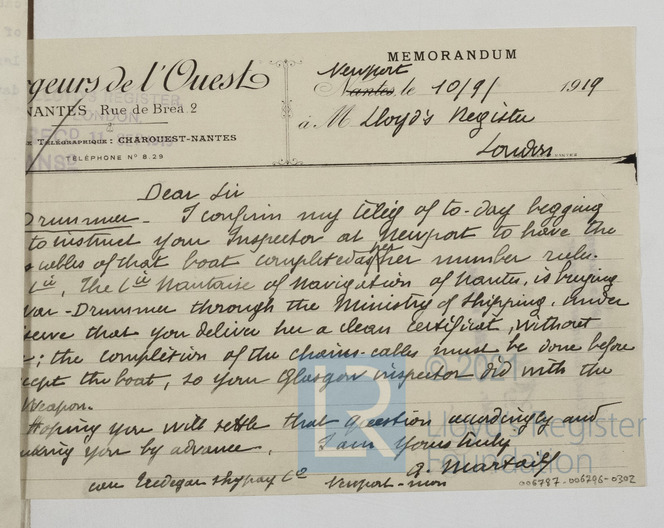 MEMORANDUM
rgeurs de l'Ouest
NANTES, Rue de Bréa 2
LLOYD'S REGISTER,
LONDON.
REC'D 11
TÉLÉGRAPHIQUE: CHAROUEST-NANTES
TÉLÉPHONE N° 8.29
Newport
Nantes, le 10/9/ 1919
à M Lloyd's Register
London
Dear Sir
Drummer - I confirm my teleg of to-day begging
to instruct your Inspector at Newport to have the
cables of that boat completed after her number rules.
Cie, The Cie Nantaise of Navigation of Nantes, is buying
War-Drummer through the Ministry of Shipping, under
serve that you deliver her a clean certificat, without
; the completion of the chains-cables must be done before
cept the boat, so your Glasgow inspector did with the
Weapon.
Hoping you will settle that question accordingly and
you by advance, I am Yours truly
care Tredegar Shipping Co Newport-Mon
© 2021
Lloyd's Register
Foundation
006787-006796-0302